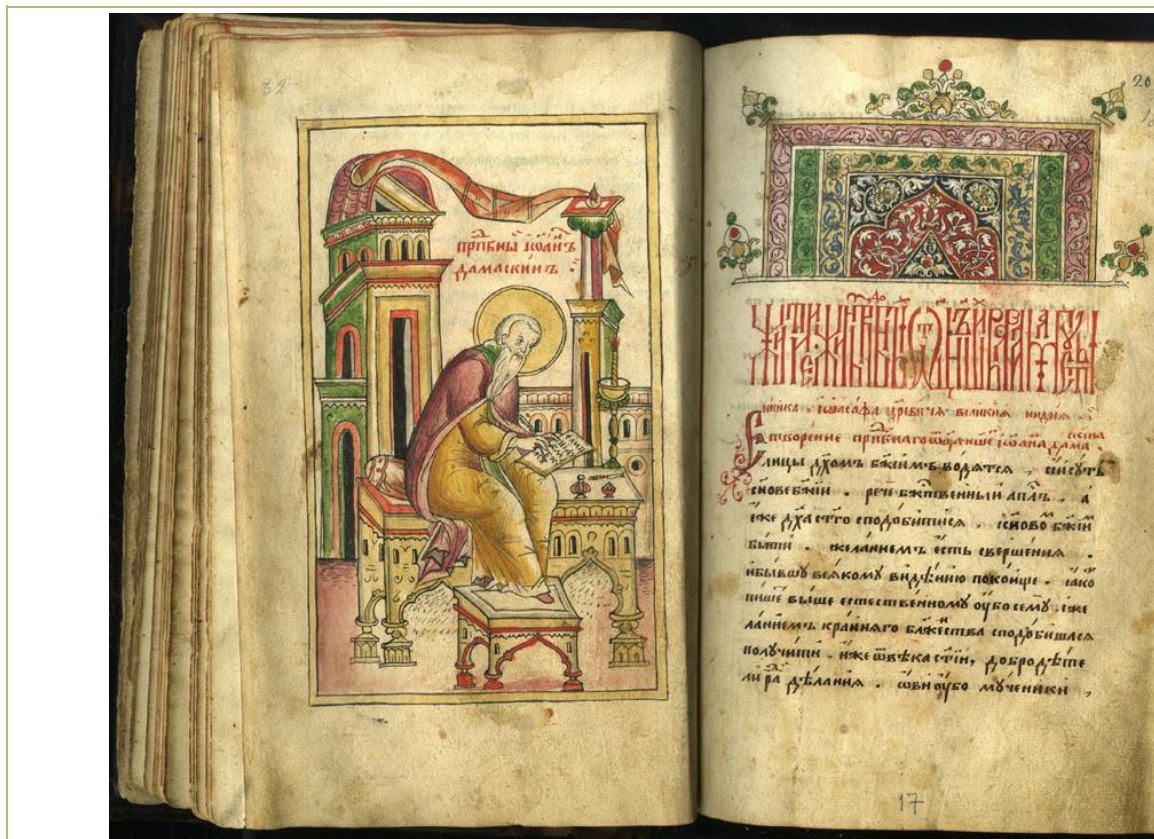 82
прпⷣбныⷤ іѡаⷩнъ
дамаскинъ
20
иника · іѡаса́фа цр҃веча вели́кия и́ндия
Створение прпⷣбнаго ѿца́ нашеⷢ іѡана дама́скина
Елицы дх҃омъ бж҃іимъ водятся , сіи су́ть
сн҃ове бж҃іи . рече бж҃твенныи ап҃лъ . а
еже дх҃а ст҃го сподобитися . сн҃овоⷨ бж҃іиⷨ
быти . желаниемъ есть свершения .
и бывшу всякому видѣнию покоище . ꙗко
пише выше естественному ѹбо сему . же
ланиемъ краиняго блж҃е́нства сподобишася
получити . иже ѿ вѣка ст҃іи, добродѣте
ли раⷣ дѣлания . ѡви ѹбо мученики ,
17